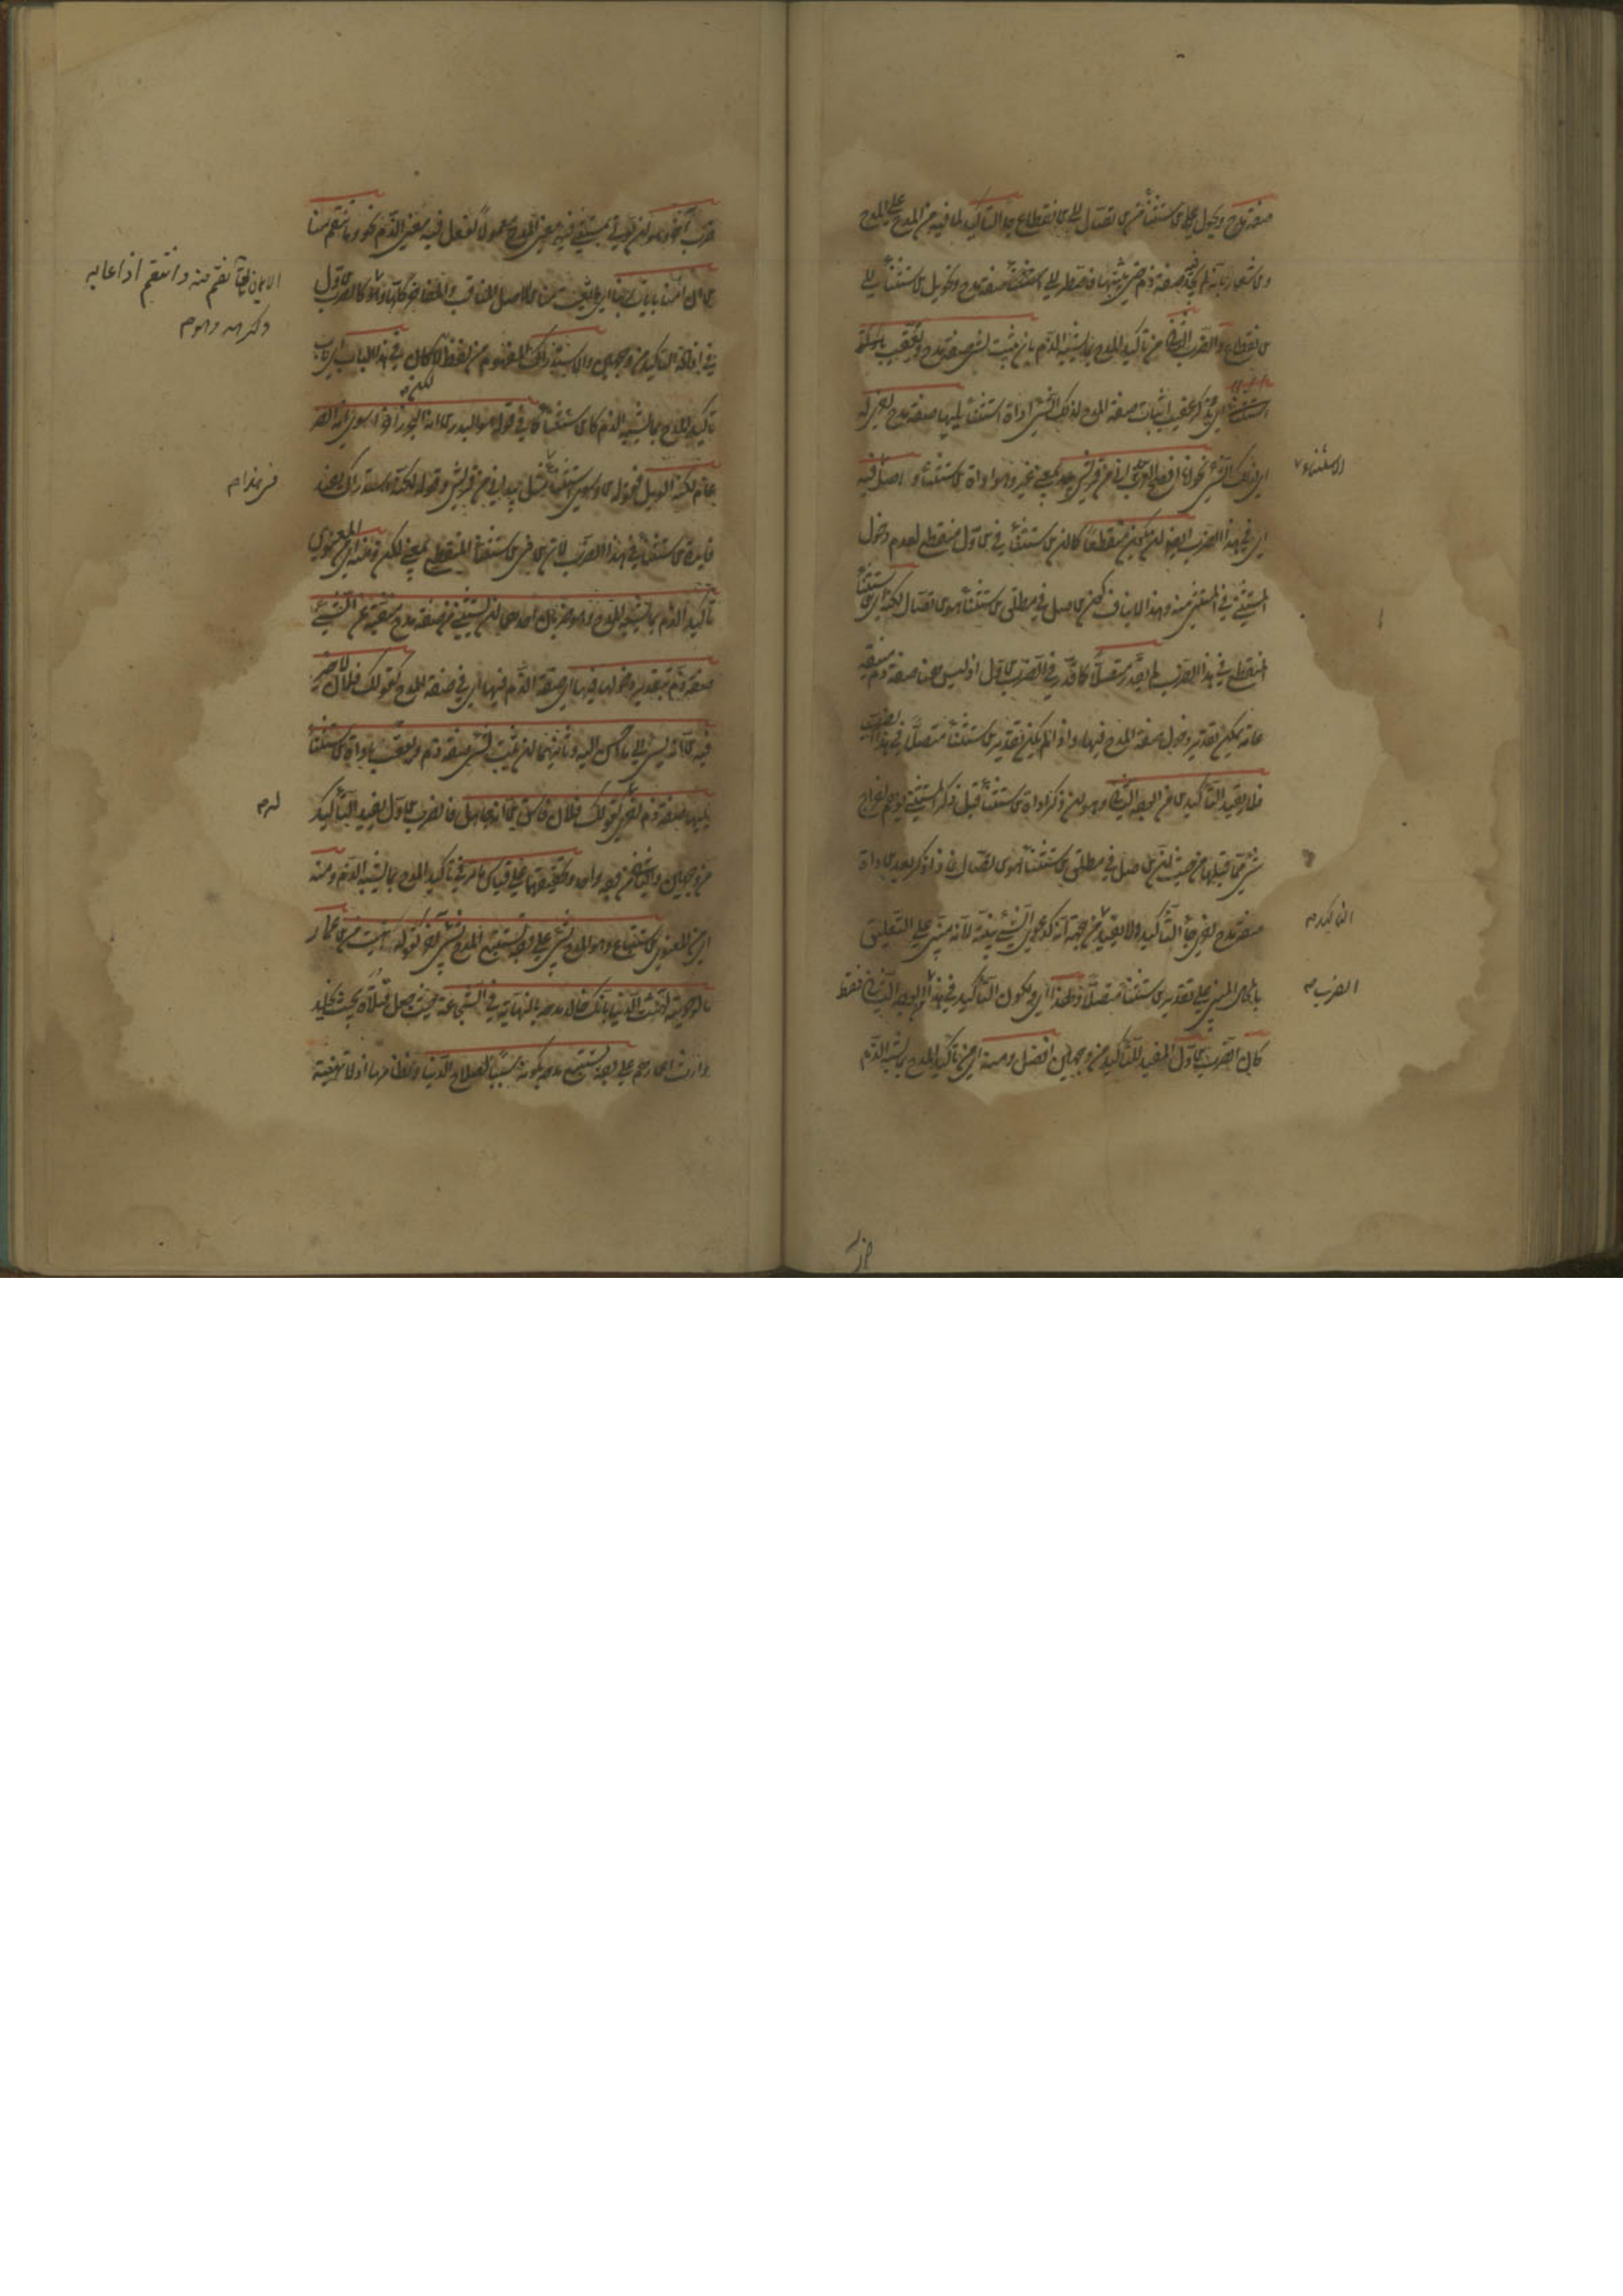 صفة مدح ويحول الاستثناء من الاتصال الى الانقطاع جاء التأكيد لما فيه من المدح على المدح
والاشعار بانه لم يجد صفة ذم حتى يثبتها فاضطر الى استثناء صفة مدح وتحويل الاستثناء الى
الانقطاع والضرب الثاني من تأكيد المدح بما يشبه الذم ان يثبت لشيء صفة مدح وتعقب باداة
استثناء اي يذكر عقيب اثبات صفة المدح لذلك الشيء اداة استثناء يليها صفة مدح اخرى له
اي لذلك الشيء نحو انا افصح العرب بيد اني من قريش بيد بمعنى غير وهو اداة الاستثناء واصل الاستثناء فيه
اي في هذا الضرب ايضا ان يكون منقطعا كما ان الاستثناء في الاول منقطع لعدم دخول
المستثنى في المستثنى منه وهذا لا ينافي كون الاصل في مطلق الاستثناء هو الاتصال لكنه اي الاستثناء
المنقطع في هذا الضرب لم يقدر متصلا كما قدر في الضرب الاول اذ ليس هنا صفة ذم منفية
عامة يمكن تقدير دخول صفة المدح فيها واذا لم يكن تقدير الاستثناء متصلا في هذا الضرب
فلا يفيد التأكيد الا من الوجه الثاني وهو ان ذكر اداة الاستثناء قبل ذكر المستثنى يوهم اخراج
شيء مما قبلها من حيث ان الاصل في مطلق الاستثناء هو الاتصال فاذا ذكر بعد الاداة
صفة مدح اخرى جاء التأكيد ولا يفيد التأكيد من جهة انه كدعوى الشيء ببينة لانه مبني على التعليق
بالمحال المبني على تقدير الاستثناء متصلا ولهذا اي ولكون التأكيد في هذا الضرب من الوجه الثاني فقط
كان الضرب الاول المفيد للتأكيد من وجهين افضل ومنه اي من تأكيد المدح بما يشبه الذم
ضرب آخر وهو ان يؤتى بمستثنى فيه معنى المدح معمولا لفعل فيه معنى الذم نحو وما تنقم منا
الا ان آمنا بآيات ربنا اي ما تعيب منا الا اصل المناقب والمفاخر كلها وهو الايمان وهو كالضرب الاول
في افادة التأكيد من وجهين والاستدراك المفهوم من لفظ لكن في هذا الباب اي باب
تأكيد المدح بما يشبه الذم كالاستثناء كما في قوله هو البدر الا انه البحر زاخرا سوى انه الضر
غام لكنه الوبل فقوله الا وسوى استثناء مثل بيد اني من قريش وقوله لكنه استدراك يفيد
فائدة الاستثناء في هذا الضرب لان الا في الاستثناء المنقطع بمعنى لكن ومنه اي من المعنوي
تأكيد الذم بما يشبه المدح وهو ضربان احدهما ان يستثنى من صفة مدح منفية عن الشيء
صفة ذم بتقدير دخولها فيها اي صفة الذم فيها اي في صفة المدح كقولك فلان لا خير
فيه الا انه يسيء الى ما احسن اليه وثانيهما ان يثبت للشيء صفة ذم وتعقب باداة استثناء
يليها صفة ذم اخرى له كقولك فلان فاسق الا انه جاهل فالضرب الاول يفيد التأكيد
من وجهين والثاني من وجه واحد وتحقيقهما على قياس ما مر في تأكيد المدح بما يشبه الذم ومنه
اي من المعنوي الاستتباع وهو المدح بشيء على وجه يستتبع المدح بشيء آخر كقوله نهبت من الاعمار
ما لو حويته لهنئت الدنيا بانك خالد مدحه بالنهاية في الشجاعة حيث جعل قتلاه بحيث يخلد
وارث اعمارهم على وجه يستتبع مدحه بكونه سببا لصلاح الدنيا ونظامها اذ لا تهنئة
الايمان يقال نقم منه وانتقم اذا عابه
وكرهه وهو م